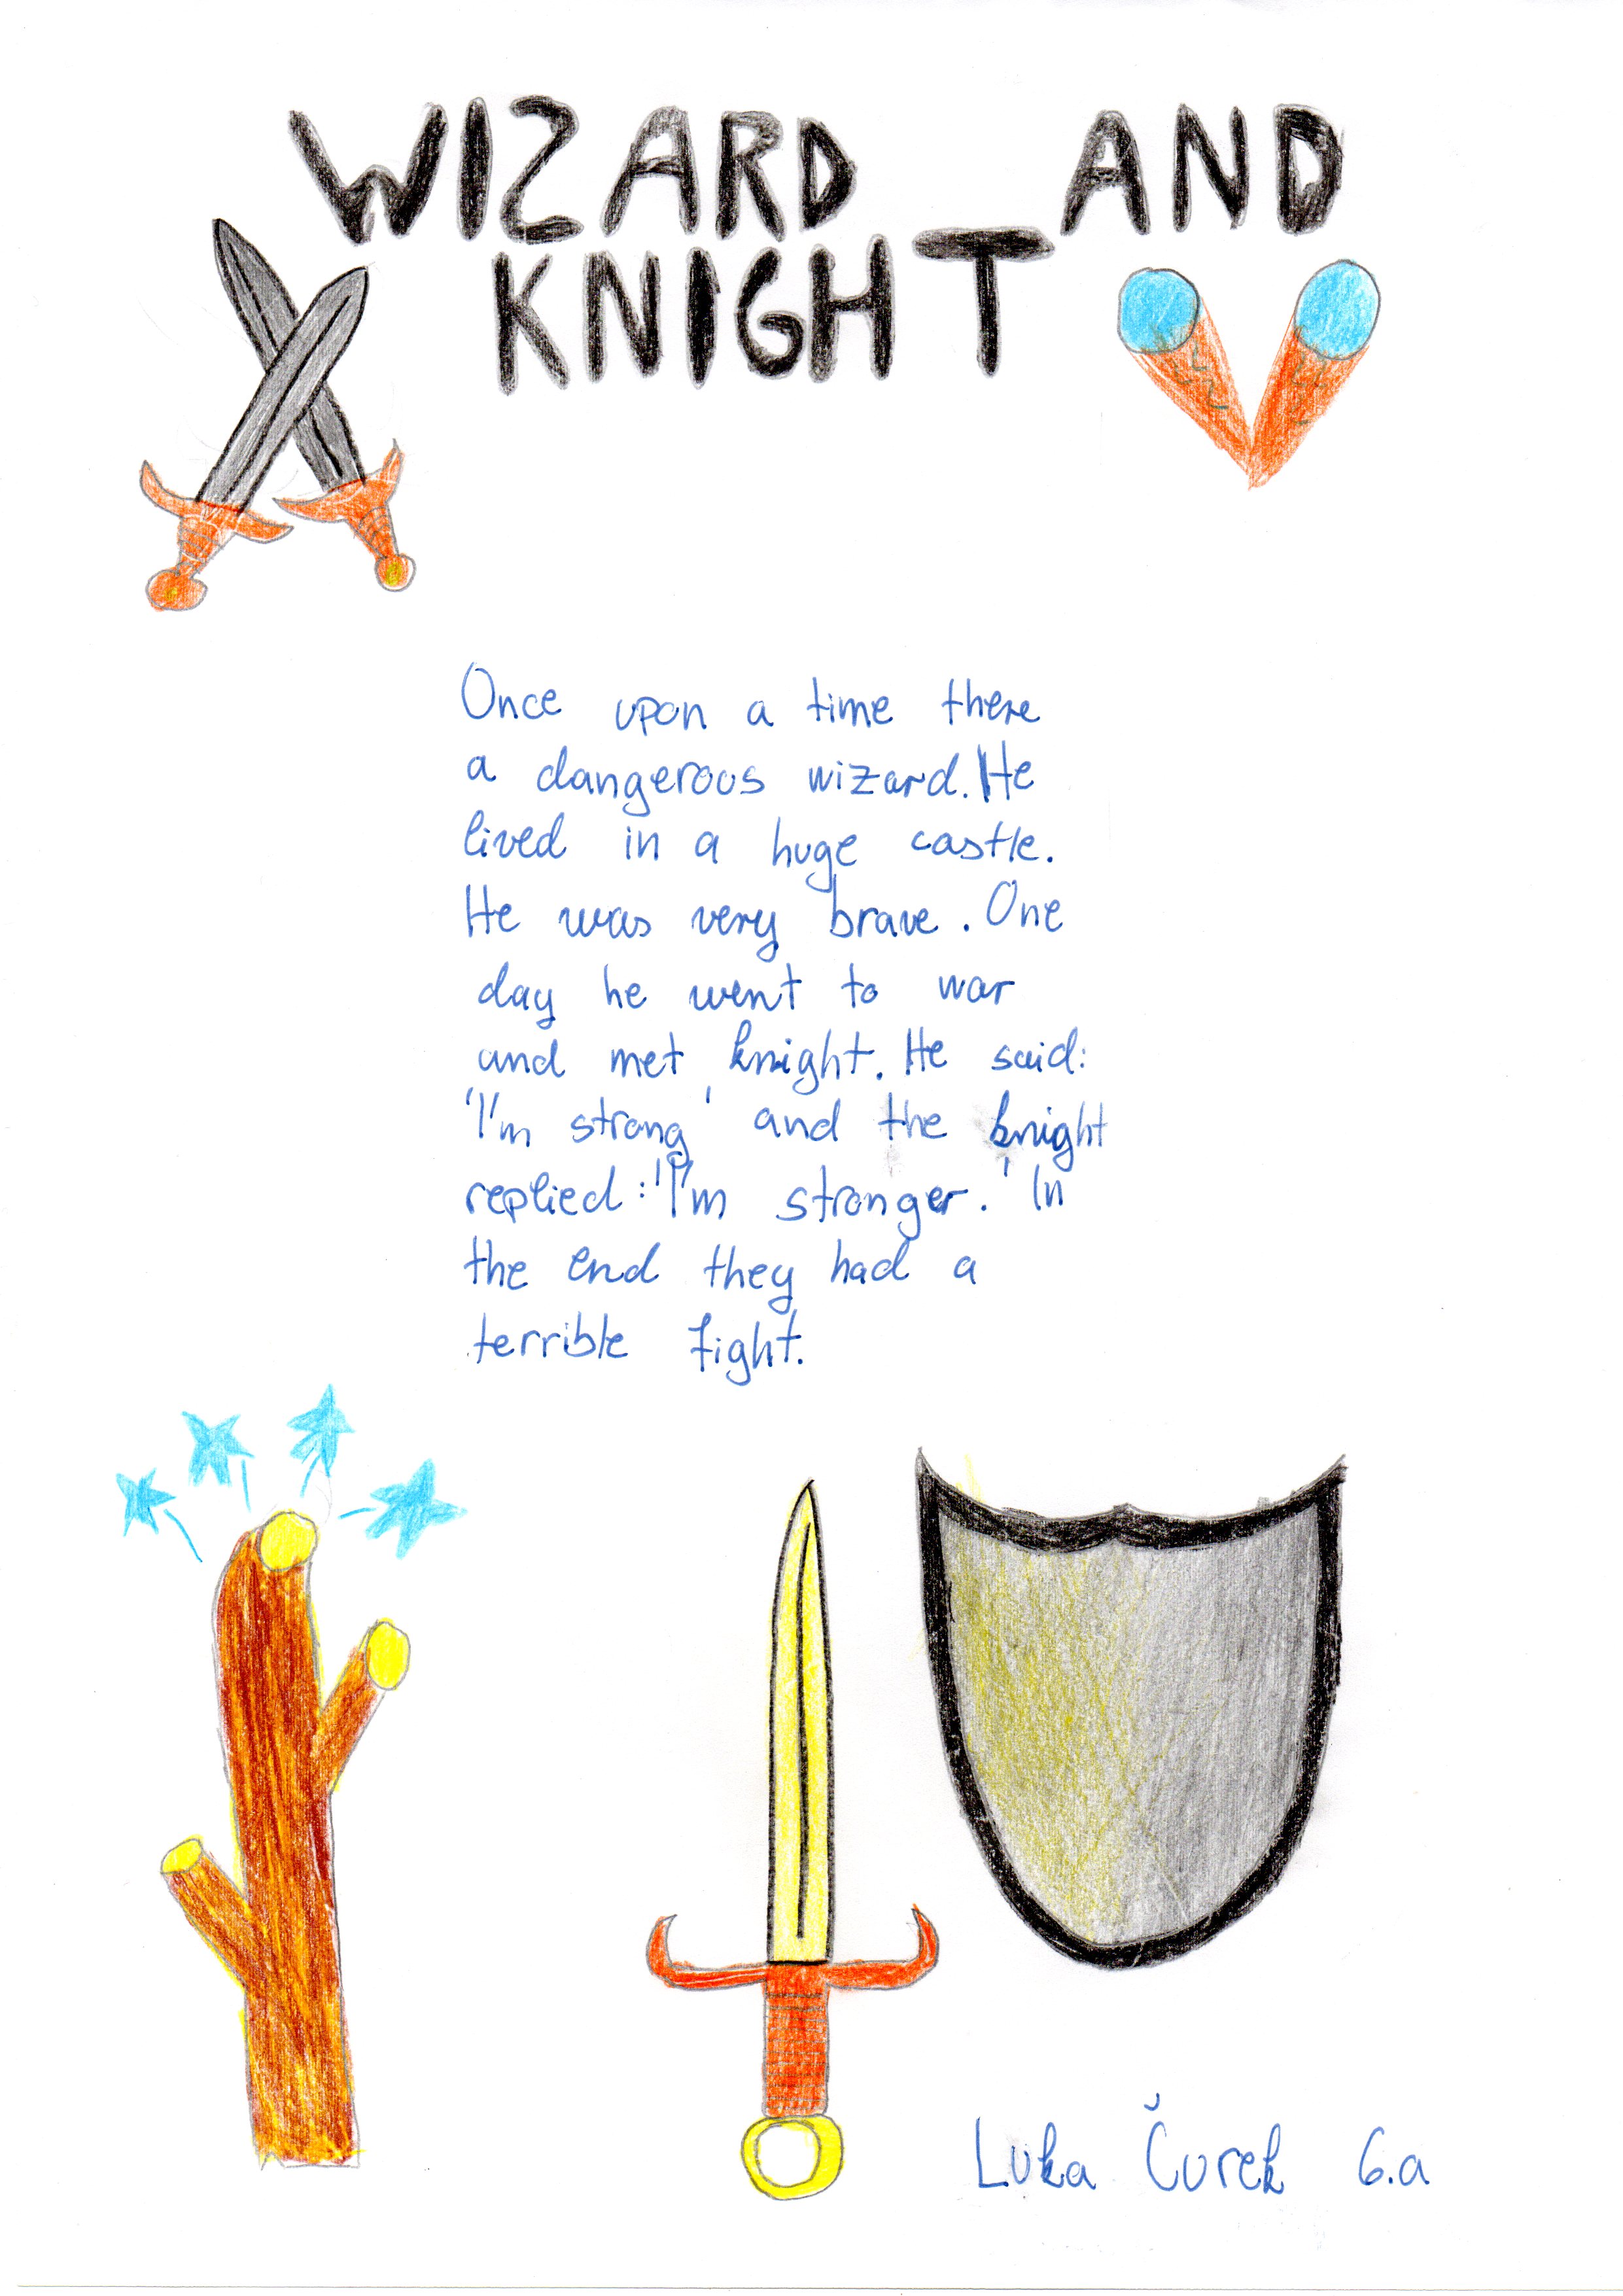 WIZARD AND
KNIGHT
Once upon a time there
a dangerous wizard. He
lived in a huge castle.
He was very brave. One
day he went to war
and met knight. He said:
'I'm strong' and the knight
replied: 'I'm stronger.' In
the end they had a
terrible fight.
Luka Čurek 6.a